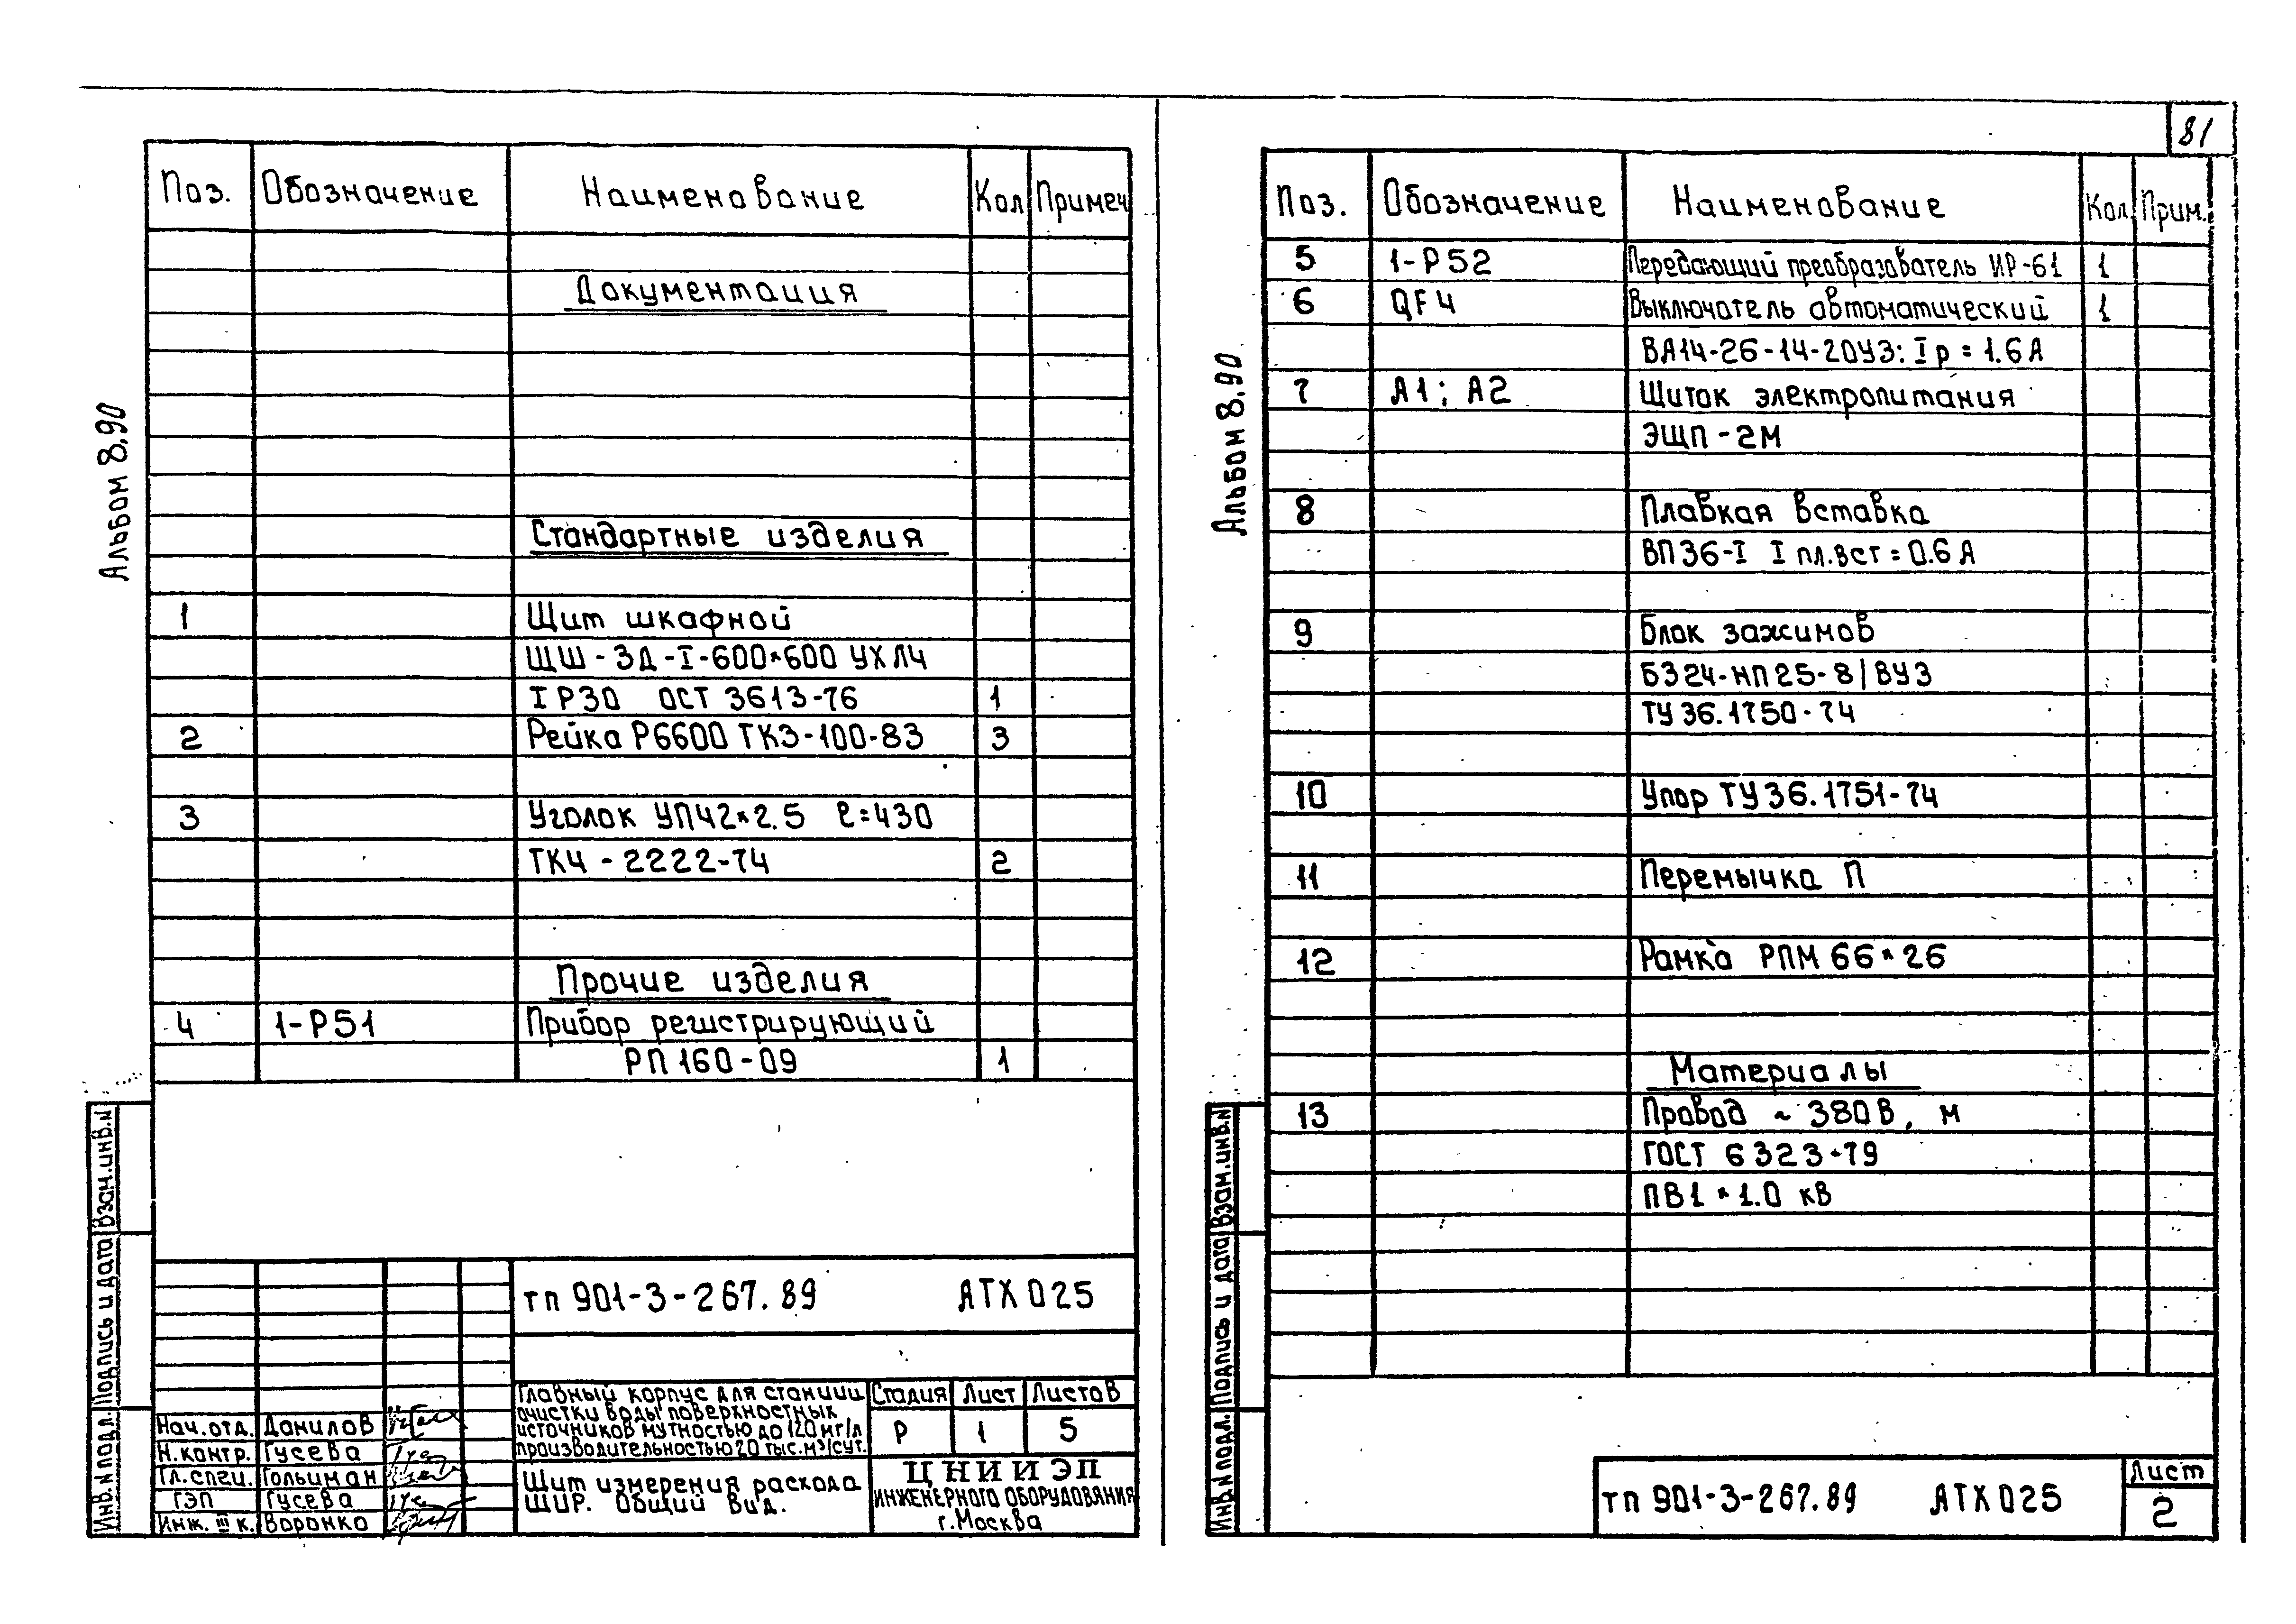 81
Альбом 8.90
Поз. Обозначение Наименование Кол Примеч
Документация
Стандартные изделия
1 Щит шкафной
ЩШ-ЗД-I-600×600 УХЛ4
IP30 ОСТ 3613-76 1
2 Рейка Р6600 ТК3-100-83 3
3 Уголок УП42×2.5 ℓ=430
ТК4-2222-74 2
Прочие изделия
4 1-Р51 Прибор регистрирующий
РП160-09 1
Взам.инв.N
Подпись и дата
Инв.N подл.
тп 901-3-267.89 АТХ025
Главный корпус для станции
очистки воды поверхностных
источников мутностью до 120 мг/л
производительностью 20 тыс.м³/сут.
Стадия Лист Листов
Р 1 5
Нач.отд. Данилов
Н.контр. Гусева
Гл.спец. Гольцман
ГЭП Гусева
Инж. III к. Воронко
Щит измерения расхода
ЩИР. Общий вид.
ЦНИИЭП
ИНЖЕНЕРНОГО ОБОРУДОВАНИЯ
г.Москва
Альбом 8.90
Поз. Обозначение Наименование Кол. Прим.
5 1-Р52 Передающий преобразователь ИР-61 1
6 QF4 Выключатель автоматический 1
ВА14-26-14-20У3: Iр=1.6А
7 А1; А2 Щиток электропитания
ЭЩП-2М
8 Плавкая вставка
ВП36-I I пл.вст=0.6А
9 Блок зажимов
БЗ24-НП25-8/ВУ3
ТУ36.1750-74
10 Упор ТУ36.1751-74
11 Перемычка П
12 Рамка РПМ 66×26
Материалы
13 Провод ~ 380В, м
ГОСТ 6323-79
ПВ1×1.0 кВ
Взам.инв.N
Подпись и дата
Инв.N подл.
тп 901-3-267.89 АТХ025
Лист
2